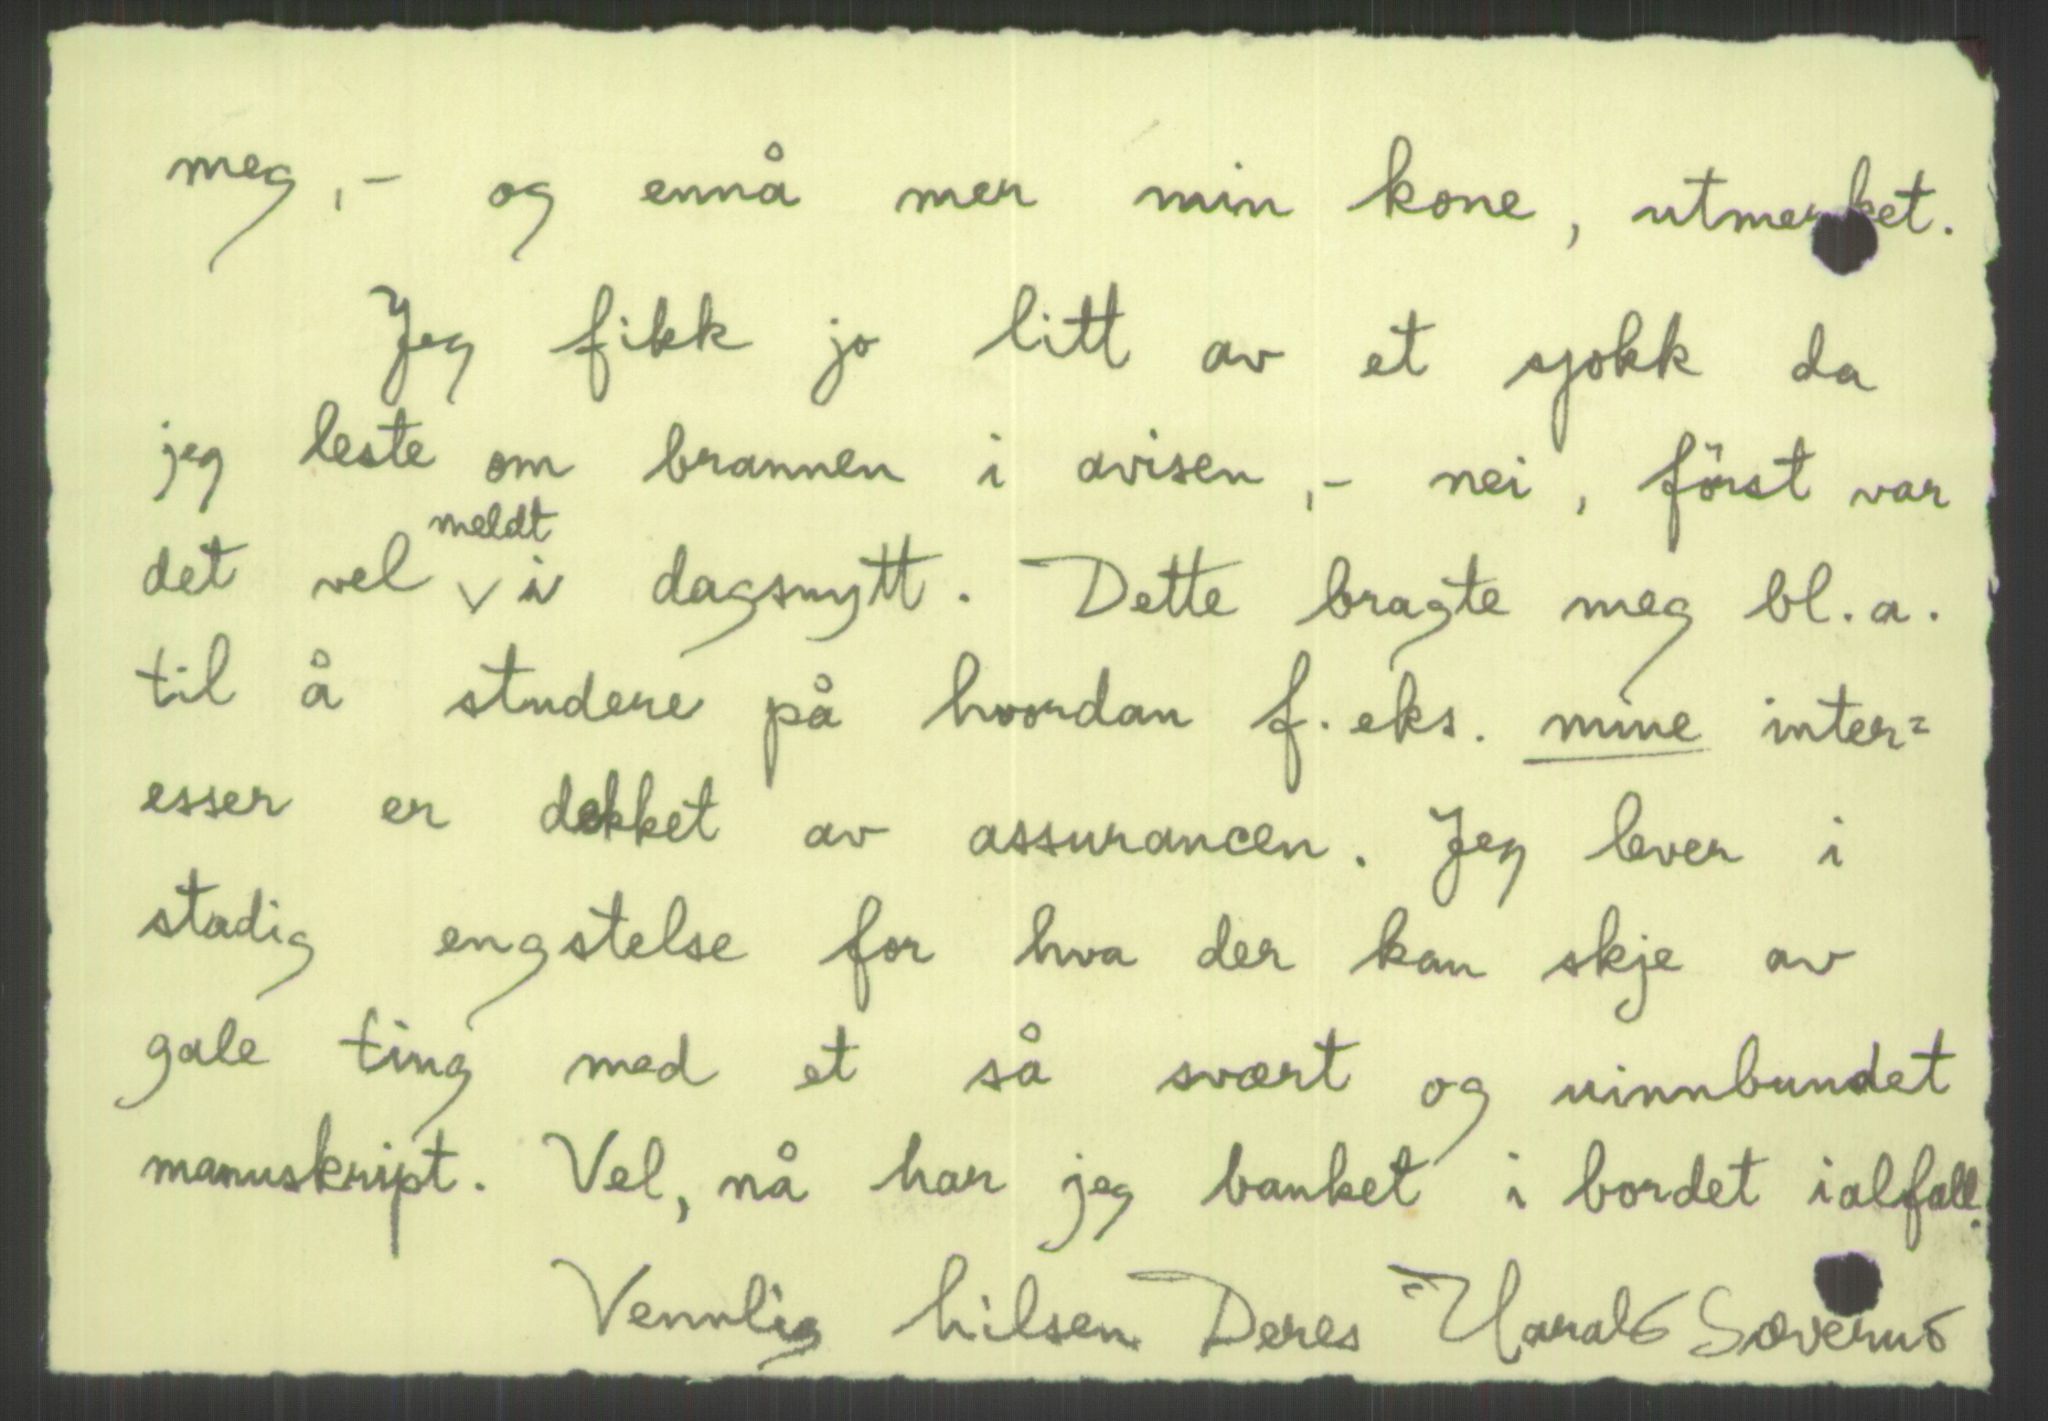 meg, - og ennå mer min kone, utmerket.
Jeg fikk jo litt av et sjokk da
jeg leste om brannen i avisen, - nei, först var
meldt
det vel √ i dagsnytt. Dette bragte meg bl.a.
til å studere på hvordan f.eks. mine inter=
esser er dekket av assurancen. Jeg lever i
stadig engstelse for hva der kan skje av
gale ting med et så svært og uinnbundet
manuskript. Vel, nå har jeg banket i bordet ialfall.
Vennlig hilsen Deres Harald Sæverud